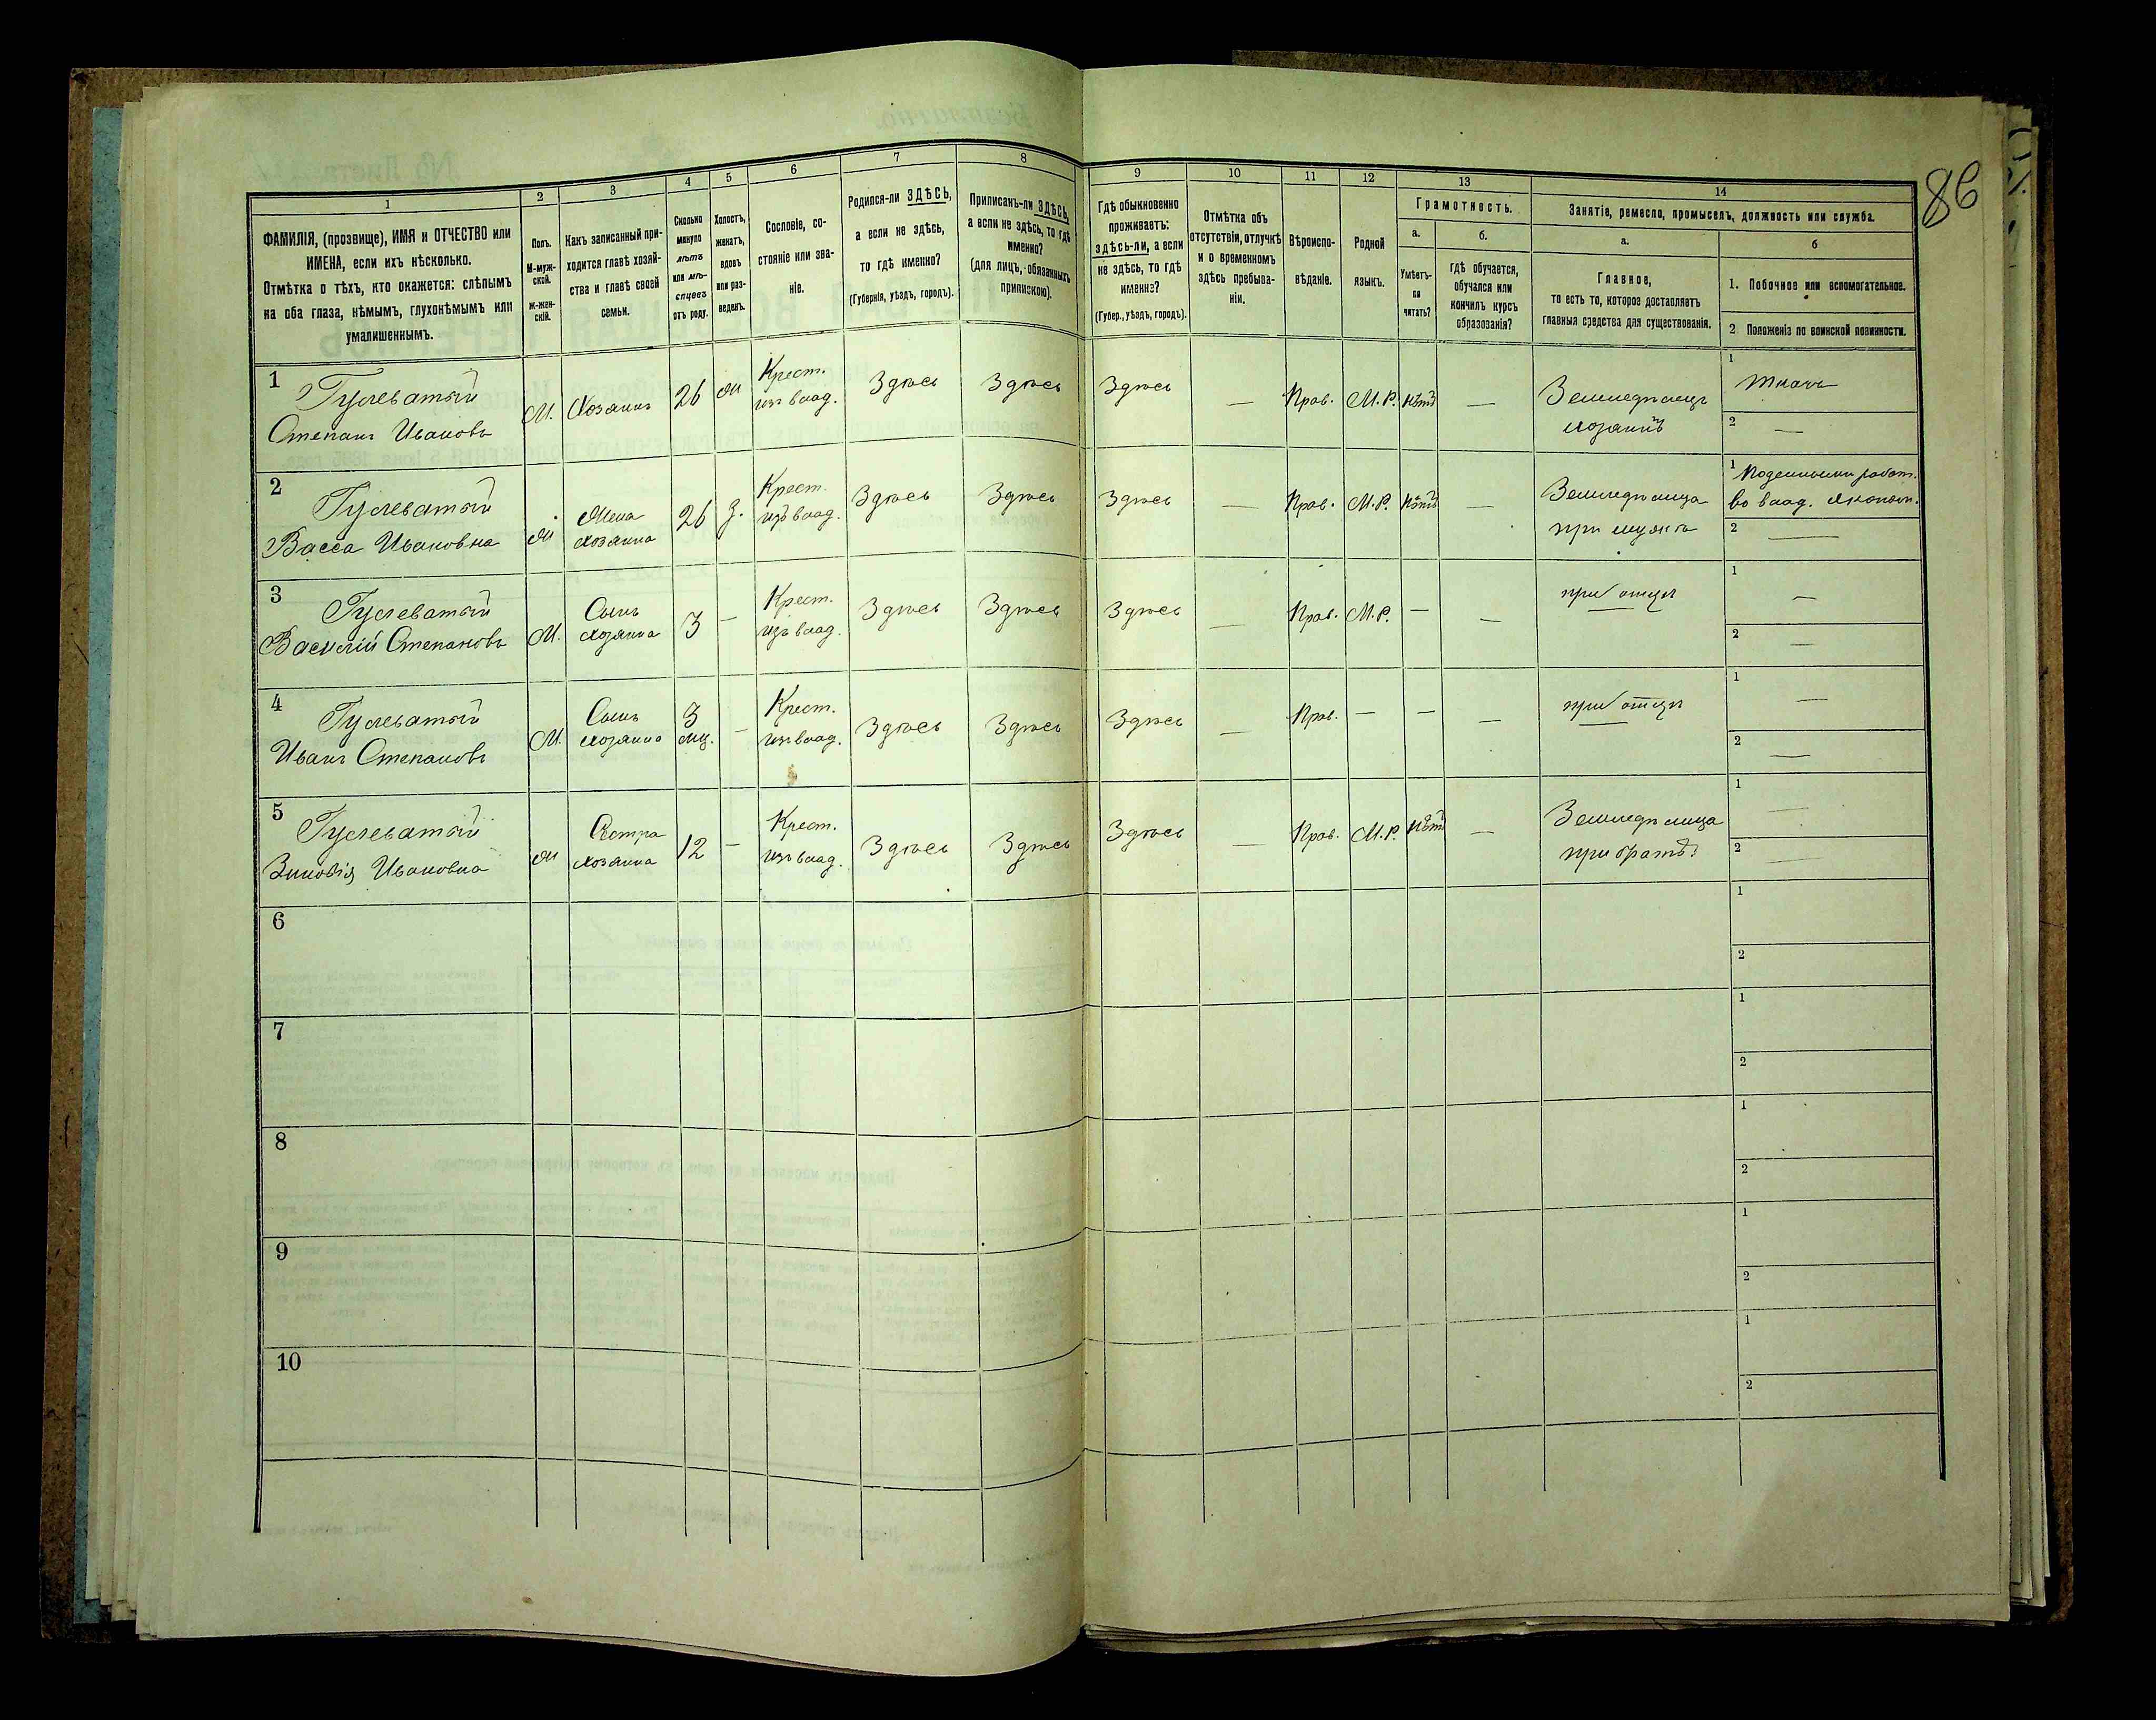 86
1
2
3
4
5
6
7
8
9
10
11
12
13
14
ФАМИЛІЯ, (прозвище), ИМЯ и ОТЧЕСТВО или
ИМЕНА, если ихъ нѣсколько.
Отмѣтка о тѣхъ, кто окажется: слѣпымъ
на оба глаза, нѣмымъ, глухонѣмымъ или
умалишеннымъ.
Полъ.
М-муж-
ской.
Ж-жен-
скій.
Какъ записанный при-
ходится главѣ хозяй-
ства и главѣ своей
семьи.
Сколько
минуло
лѣтъ
или мѣ-
сяцевъ
отъ роду.
Холостъ,
женатъ,
вдовъ
или раз-
веденъ.
Сословіе, со-
стояніе или зва-
ніе.
Родился-ли ЗДѢСЬ,
а если не здѣсь,
то гдѣ именно?
(Губернія, уѣздъ, городъ).
Приписанъ-ли ЗДѢСЬ,
а если не здѣсь, то гдѣ
именно?
(для лицъ, обязанныхъ
припискою).
Гдѣ обыкновенно
проживаетъ:
здѣсь-ли, а если
не здѣсь, то гдѣ
именно?
(Губер., уѣздъ, городъ).
Отмѣтка объ
отсутствіи, отлучкѣ
и о временномъ
здѣсь пребыва-
ніи.
Вѣроиспо-
вѣданіе.
Родной
языкъ.
Грамотность.
а.
Умѣетъ-
ли
читать?
б.
гдѣ обучается,
обучался или
кончилъ курсъ
образованія?
Занятіе, ремесло, промыселъ, должность или служба.
а.
Главное,
то есть то, которое доставляетъ
главныя средства для существованія.
б
1. Побочное или вспомогательное.
2 Положеніе по воинской повинности.
1
Гулеватый
Степанъ Ивановъ
М.
Хозяинъ
26
ж
Крест.
изъ влад.
Здѣсь
Здѣсь
Здѣсь
—
Прав.
М.Р.
нѣтъ
—
Земледѣлецъ
хозяинъ
1
Ткачъ
2
—
2
Гулеватый
Васса Ивановна
ж
Жена
хозяина
26
з.
Крест.
изъ влад.
Здѣсь
Здѣсь
Здѣсь
—
Прав.
М.Р.
нѣтъ
—
Земледѣлица
при мужѣ
1
Поденныхъ работ.
во влад. эконом.
2
—
3
Гулеватый
Василій Степановъ
М.
Сынъ
хозяина
3
—
Крест.
изъ влад.
Здѣсь
Здѣсь
Здѣсь
—
Прав.
М.Р.
—
—
при отцѣ
1
—
2
—
4
Гулеватый
Иванъ Степановъ
М.
Сынъ
хозяина
3
мц.
—
Крест.
изъ влад.
Здѣсь
Здѣсь
Здѣсь
—
Прав.
—
—
—
при отцѣ
1
—
2
—
5
Гулеватый
Зиновія Ивановна
ж
Сестра
хозяина
12
—
Крест.
изъ влад.
Здѣсь
Здѣсь
Здѣсь
—
Прав.
М.Р.
нѣтъ
—
Земледѣлица
при братѣ
1
—
2
—
6
1
2
7
1
2
8
1
2
9
1
2
10
1
2